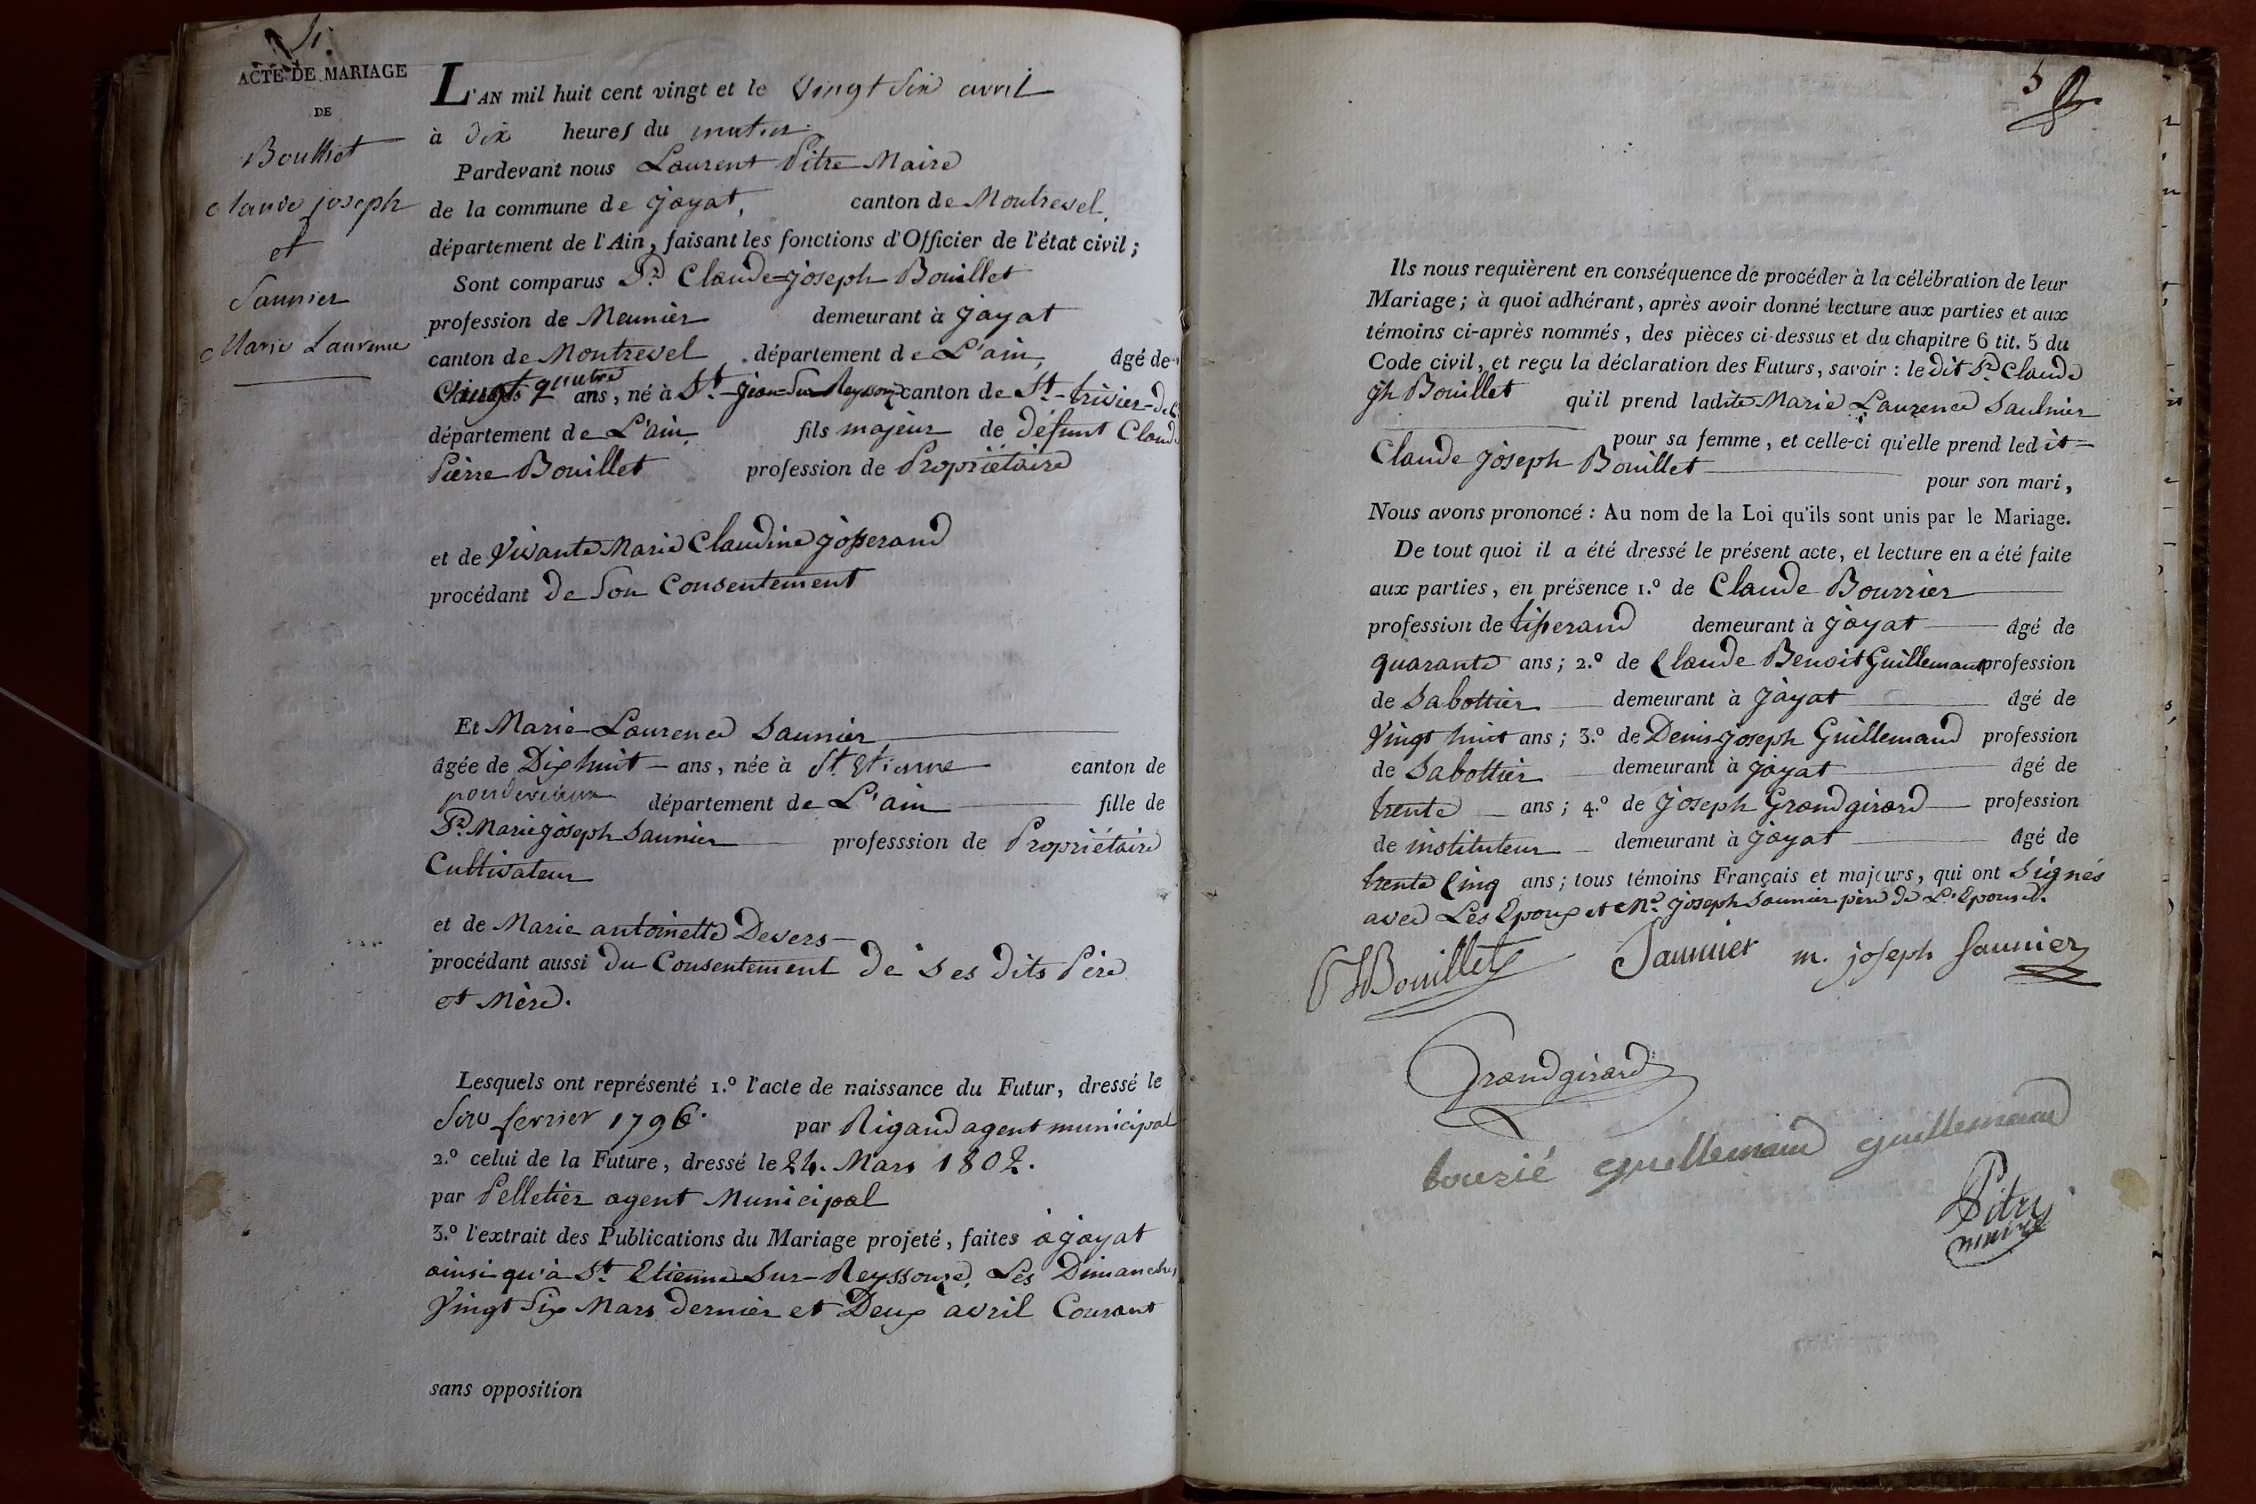 ACTE DE MARIAGE
DE
Bouillet
Claude joseph
et
Saunier
Marie Laurence
L'AN mil huit cent vingt et le vingt Six avril
à Dix heures du matin
Pardevant nous Laurent Pitre Maire
de la commune de jayat, canton de Montrevel,
département de l'Ain, faisant les fonctions d'Officier de l'état civil;
Sont comparus Sr. Claude=joseph Bouillet
profession de Meunier demeurant à jayat
canton de Montrevel département de L'ain, âgé de
vingt quatre ans, né à St.-jean-Sur-Reyssouze canton de St-trivier-de
département de L'ain fils majeur de défunt Claude
Pierre Bouillet profession de Propriétaire
et de Vivante Marie Claudine josserand
procédant de Son Consentement
Et Marie Laurence Saunier
âgée de Dix huit ans, née à St. Etienne canton de
département de L'ain fille de
Sr. Marie joseph Saunier professsion de Propriétaire
Cultivateur
et de Marie antoinette Devers
procédant aussi du Consentement de Ses dits Père
et Mère.
Lesquels ont représenté 1.º l'acte de naissance du Futur, dressé le
Six fevrier 1796. par Rigaud agent municipal
2.º celui de la Future, dressé le 24. Mars 1802.
par Pelletier agent Municipal
3.º l'extrait des Publications du Mariage projeté, faites à jayat
ainsi qu'à St. Etienne Sur-Reyssouze, Les Dimanches
Vingt Six Mars dernier et Deux avril Courant
sans opposition
5
Ils nous requièrent en conséquence de procéder à la célébration de leur
Mariage; à quoi adhérant, après avoir donné lecture aux parties et aux
témoins ci-après nommés, des pièces ci-dessus et du chapitre 6 tit. 5 du
Code civil, et reçu la déclaration des Futurs, savoir : le dit Sr. Claude
jh Bouillet qu'il prend ladite Marie Laurence Saulnier
pour sa femme, et celle-ci qu'elle prend ledit=
Claude joseph Bouillet
pour son mari,
Nous avons prononcé : Au nom de la Loi qu'ils sont unis par le Mariage.
De tout quoi il a été dressé le présent acte, et lecture en a été faite
aux parties, en présence 1.º de Claude Bourrier
profession de tisserand demeurant à jayat âgé de
quarante ans; 2.º de Claude Benoit Guillemaud profession
de Sabottier demeurant à jayat âgé de
Vingt huit ans; 3.º de Denis-joseph Guillemaud profession
de Sabottier demeurant à jayat âgé de
trente ans; 4.º de joseph Grandgirard profession
de instituteur demeurant à jayat âgé de
trente Cinq ans; tous témoins Français et majeurs, qui ont Signés
avec Les Epoux et Me. joseph Saunier père de L'Epouse.
Bouillet Saunier m. joseph Saunier
Grandgirard
bourié guillemaud guillemaud
Pitre
maire